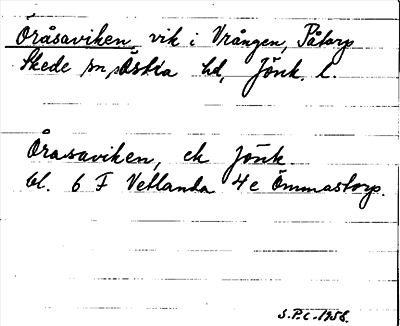 Öråsaviken, vik i Vrången, Påtorp
Skede sn, Östra hd, Jönk. l.
Örasaviken, ek Jönk
bl. 6 F Vetlanda 4e Ömmastorp.
S.P.C. 1958.